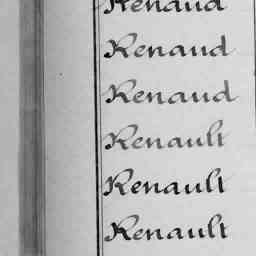 Renaud
Renaud
Renaud
Renault
Renault
Renault